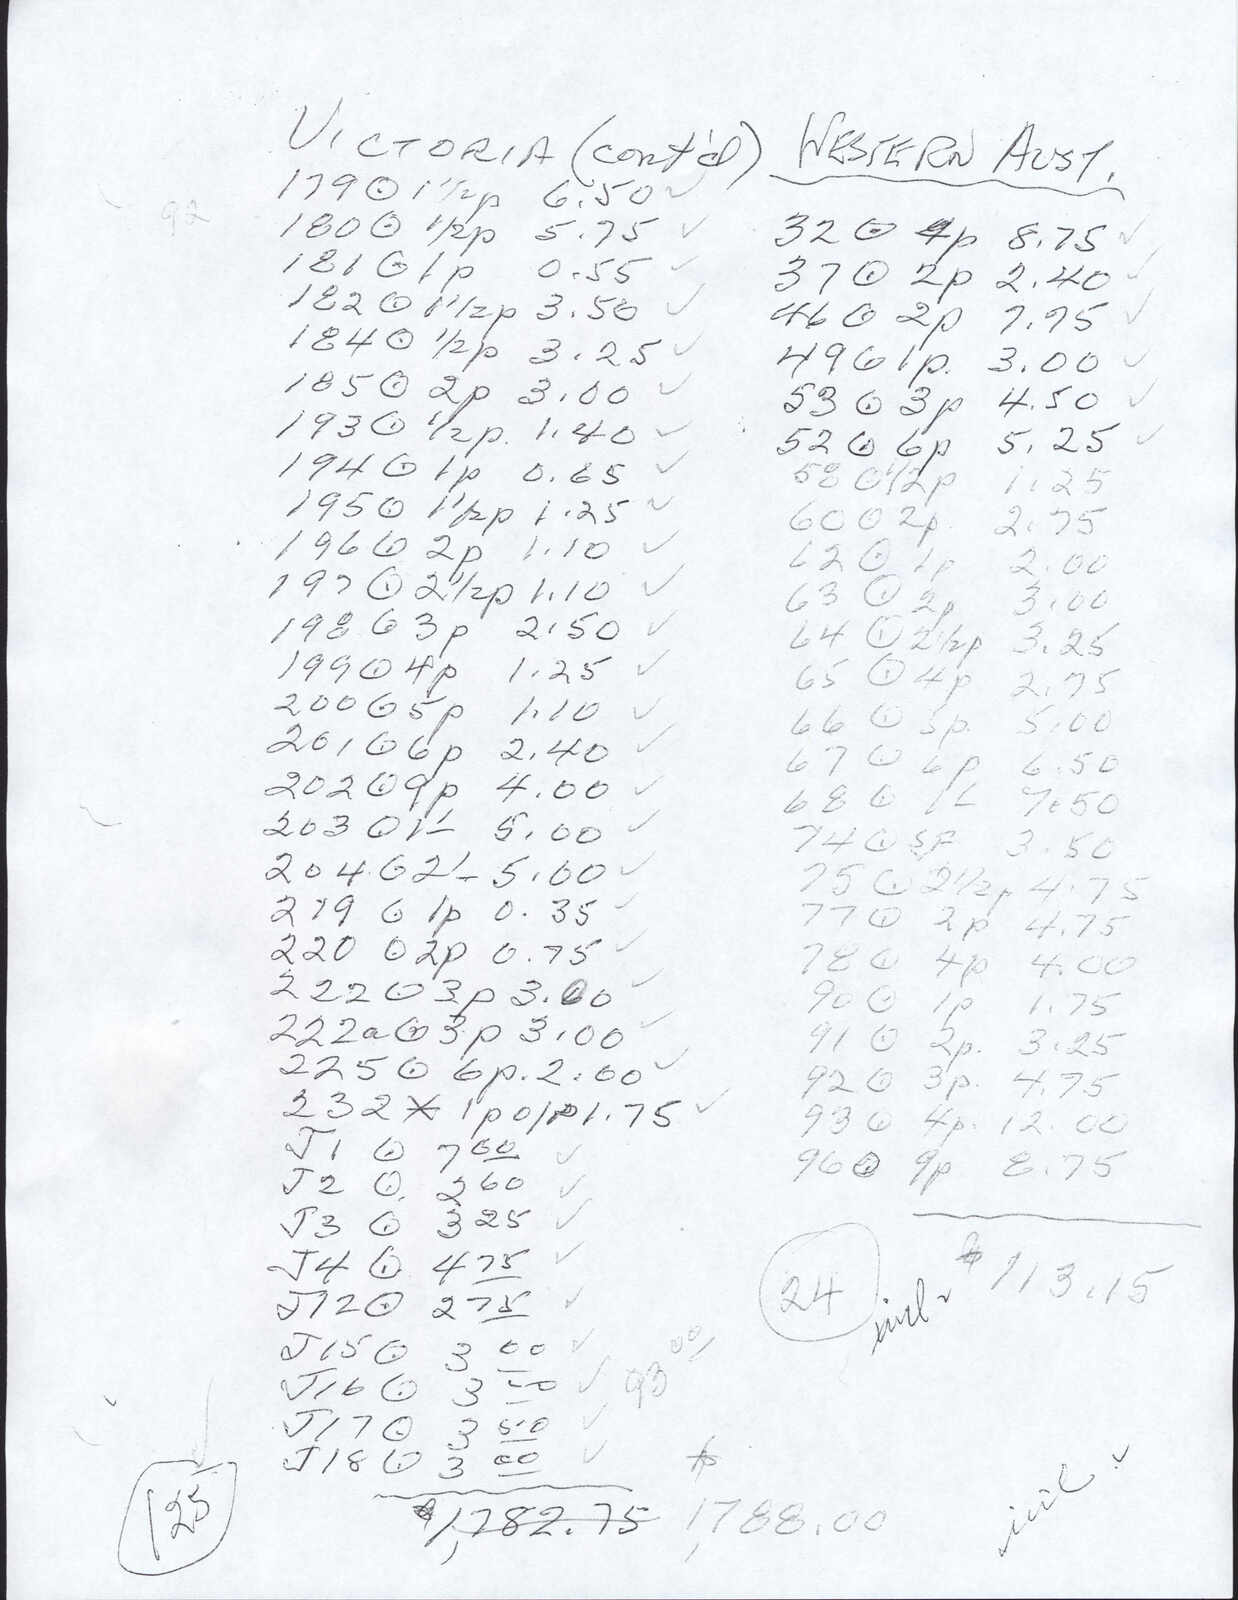 VICTORIA (cont'd)
179 ⊙ 1½p 6.50 ✓
180 ⊙ ½p 5.75 ✓
181 ⊙ 1p 0.55 ✓
182 ⊙ 1½p 3.50 ✓
184 ⊙ ½p 3.25 ✓
185 ⊙ 2p 3.00 ✓
193 ⊙ ½p. 1.40 ✓
194 ⊙ 1p 0.65 ✓
195 ⊙ 1½p 1.25 ✓
196 ⊙ 2p 1.10 ✓
197 ⊙ 2½p 1.10 ✓
198 ⊙ 3p 2.50 ✓
199 ⊙ 4p 1.25 ✓
200 ⊙ 5p 1.10 ✓
201 ⊙ 6p 2.40 ✓
202 ⊙ 9p 4.00 ✓
203 ⊙ 1/- 5.00 ✓
204 ⊙ 2/- 5.00 ✓
219 ⊙ 1p 0.35 ✓
220 ⊙ 2p 0.75 ✓
222 ⊙ 3p 3.00 ✓
222a ⊙ 3p 3.00 ✓
225 ⊙ 6p. 2.00 ✓
232 * 1p o/p 1.75 ✓
J1 ⊙ 7 00 ✓
J2 ⊙ 2 60 ✓
J3 ⊙ 3 25 ✓
J4 ⊙ 4 75 ✓
J12 ⊙ 2 75 ✓
J15 ⊙ 3 00 ✓
J16 ⊙ 3 50 ✓
J17 ⊙ 3 50 ✓
J18 ⊙ 3 00 ✓
93 00
125
$1,782.75
$1,788.00
92
WESTERN AUST.
32 ⊙ 4p 8.75 ✓
37 ⊙ 2p 2.40 ✓
46 ⊙ 2p 7.75 ✓
49 ⊙ 1p. 3.00 ✓
53 ⊙ 3p 4.50 ✓
52 ⊙ 6p 5.25 ✓
58 ⊙ ½p 1.25
60 ⊙ 2p. 2.75
62 ⊙ 1p 2.00
63 ⊙ 2p 3.00
64 ⊙ 2½p 3.25
65 ⊙ 4p 2.75
66 ⊙ 5p. 5.00
67 ⊙ 6p 6.50
68 ⊙ 1/- 7.50
74 ⊙ 3.50
75 ⊙ 2½p 4.75
77 ⊙ 2p 4.75
78 ⊙ 4p 4.00
90 ⊙ 1p 1.75
91 ⊙ 2p. 3.25
92 ⊙ 3p. 4.75
93 ⊙ 4p. 12.00
96 ⊙ 9p 8.75
24
incl. $113.15
incl.